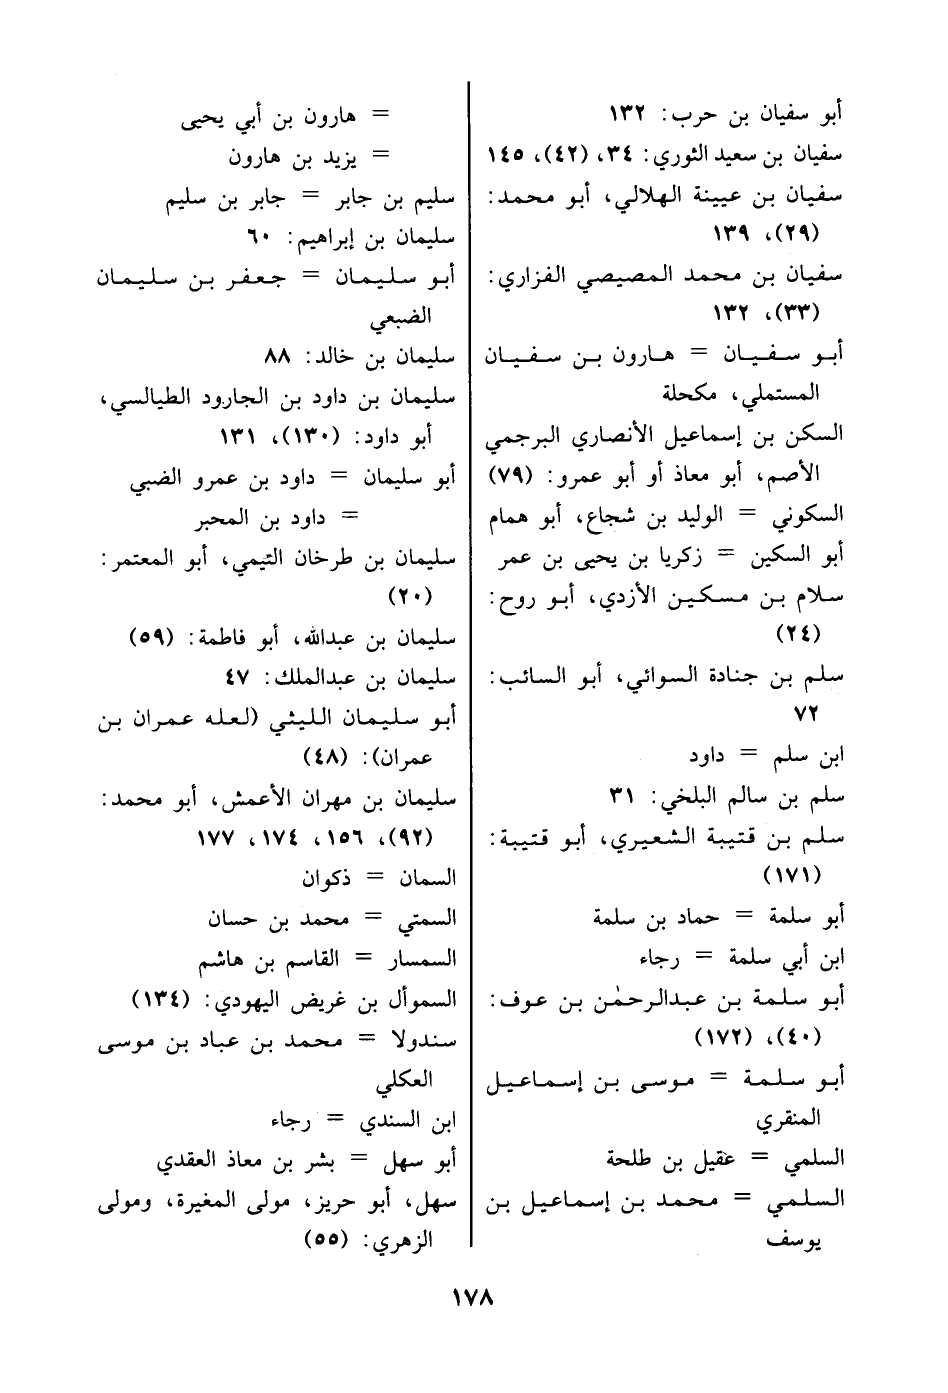 أبو سفيان بن حرب: ١٣٢
سفيان بن سعيد الثوري: ٣٤، (٤٢)، ١٤٥
سفيان بن عيينة الهلالي، أبو محمد:
(٢٩)، ١٣٩
سفيان بن محمد المصيصي الفزاري:
(٣٣)، ١٣٢
أبو سفيان = هارون بن سفيان
المستملي، مكحلة
السكن بن إسماعيل الأنصاري البرجمي
الأصم، أبو معاذ أو أبو عمرو: (٧٩)
السكوني = الوليد بن شجاع، أبو همام
أبو السكين = زكريا بن يحيى بن عمر
سلام بن مسكين الأزدي، أبو روح:
(٢٤)
سلم بن جنادة السوائي، أبو السائب:
٧٢
ابن سلم = داود
سلم بن سالم البلخي: ٣١
سلم بن قتيبة الشعيري، أبو قتيبة:
(١٧١)
أبو سلمة = حماد بن سلمة
ابن أبي سلمة = رجاء
أبو سلمة بن عبدالرحمٰن بن عوف:
(٤٠)، (١٧٢)
أبو سلمة = موسى بن إسماعيل
المنقري
السلمي = عقيل بن طلحة
السلمي = محمد بن إسماعيل بن
يوسف
= هارون بن أبي يحيى
= يزيد بن هارون
سليم بن جابر = جابر بن سليم
سليمان بن إبراهيم: ٦٠
أبو سليمان = جعفر بن سليمان
الضبعي
سليمان بن خالد: ٨٨
سليمان بن داود بن الجارود الطيالسي،
أبو داود: (١٣٠)، ١٣١
أبو سليمان = داود بن عمرو الضبي
= داود بن المحبر
سليمان بن طرخان التيمي، أبو المعتمر:
(٢٠)
سليمان بن عبدالله، أبو فاطمة: (٥٩)
سليمان بن عبدالملك: ٤٧
أبو سليمان الليثي (لعله عمران بن
عمران): (٤٨)
سليمان بن مهران الأعمش، أبو محمد:
(٩٢)، ١٥٦، ١٧٤، ١٧٧
السمان = ذكوان
السمتي = محمد بن حسان
السمسار = القاسم بن هاشم
السموأل بن غريض اليهودي: (١٣٤)
سندولا = محمد بن عباد بن موسى
العكلي
ابن السندي = رجاء
أبو سهل = بشر بن معاذ العقدي
سهل، أبو حريز، مولى المغيرة، ومولى
الزهري: (٥٥)
١٧٨